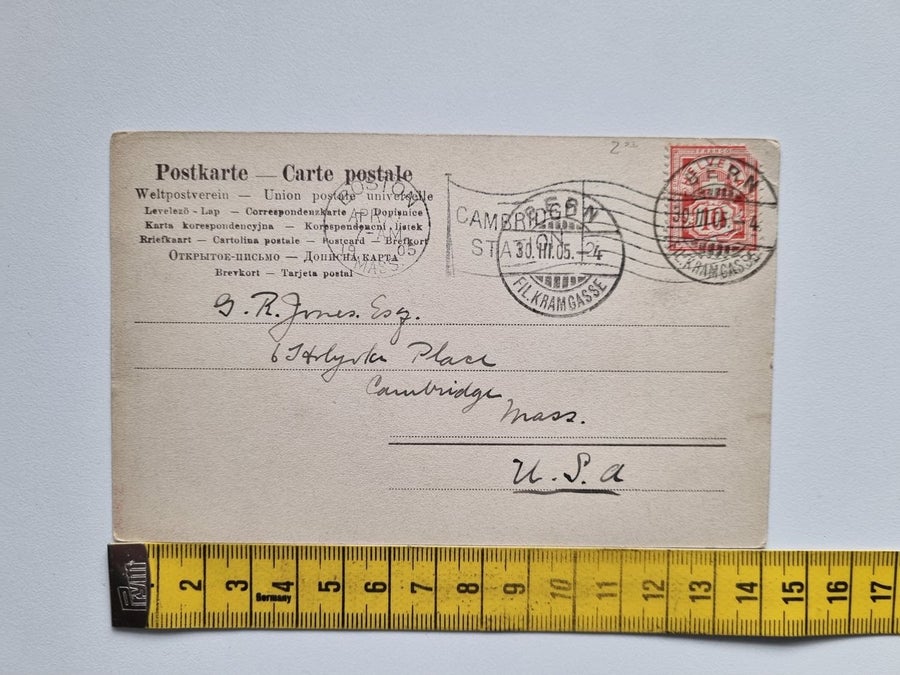 Postkarte — Carte postale
Weltpostverein — Union postale universelle
Levelező - Lap — Correspondenzkarte — Dopisnice
Karta korespondencyjna — Korespondencni listek
Briefkaart — Cartolina postale — Postcard — Brefkort
Открытое-письмо — Дописна карта
Brevkort — Tarjeta postal
BOSTON
APR
7-AM
19 05
MASS.
CAMBRIDGE
STATION
BERN
30.III.05.-4
FIL.KRAMGASSE
2
FRANCO
HELVETIA
10
BERN
30.III.05.-4
FIL.KRAMGASSE
G. R. Jones. Esq.
6 Holyoke Place
Cambridge
Mass.
U.S.A
2 3 4 5 6 7 8 9 10 11 12 13 14 15 16 17
Germany